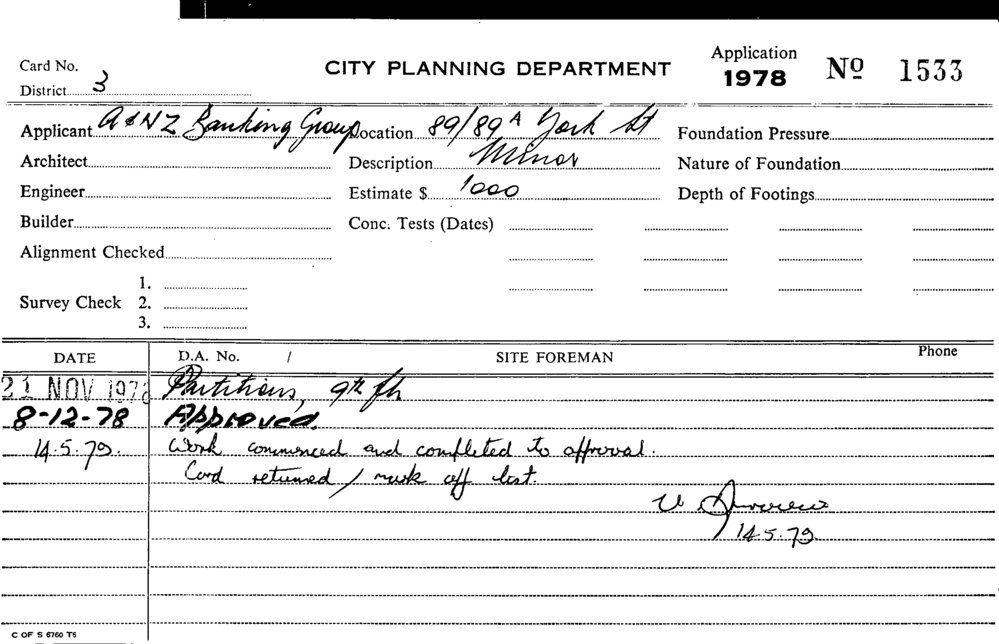 Card No.
CITY PLANNING DEPARTMENT
Application
1978
Nº 1533
District 3
Applicant A & NZ Banking Group
Location 89/89A York St
Foundation Pressure
Architect
Description Minor
Nature of Foundation
Engineer
Estimate $ 1000
Depth of Footings
Builder
Conc. Tests (Dates)
Alignment Checked
1.
Survey Check 2.
3.
DATE D.A. No. / SITE FOREMAN Phone
21 NOV 1978 Partitions, 9th flr
8-12-78 Approved.
14.5.79. Work commenced and completed to approval.
Card returned / mark off list.
14.5.79
C OF S 6760 T5